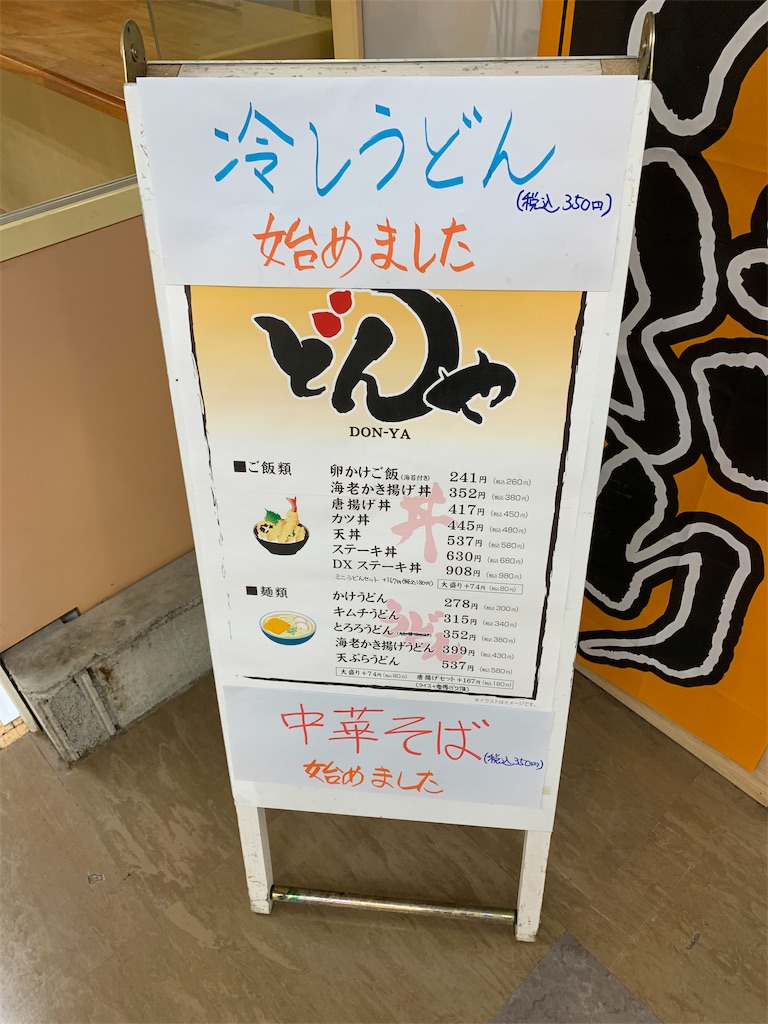 冷しうどん
(税込350円)
始めました
どんや
DON-YA
■ご飯類
卵かけご飯(海苔付き) 241円(税込260円)
海老かき揚げ丼 352円(税込380円)
唐揚げ丼 417円(税込450円)
カツ丼 445円(税込480円)
天丼 537円(税込580円)
ステーキ丼 630円(税込680円)
DX ステーキ丼 908円(税込980円)
ミニうどんセット +167円(税込180円)
大盛り+74円(税込80円)
丼
■麺類
かけうどん 278円(税込300円)
キムチうどん 315円(税込340円)
とろろうどん 352円(税込380円)
海老かき揚げうどん 399円(税込430円)
天ぷらうどん 537円(税込580円)
うどん
大盛り+74円(税込80円) 唐揚げセット+167円(税込180円)
※イラストはイメージです。
中華そば
(税込350円)
始めました